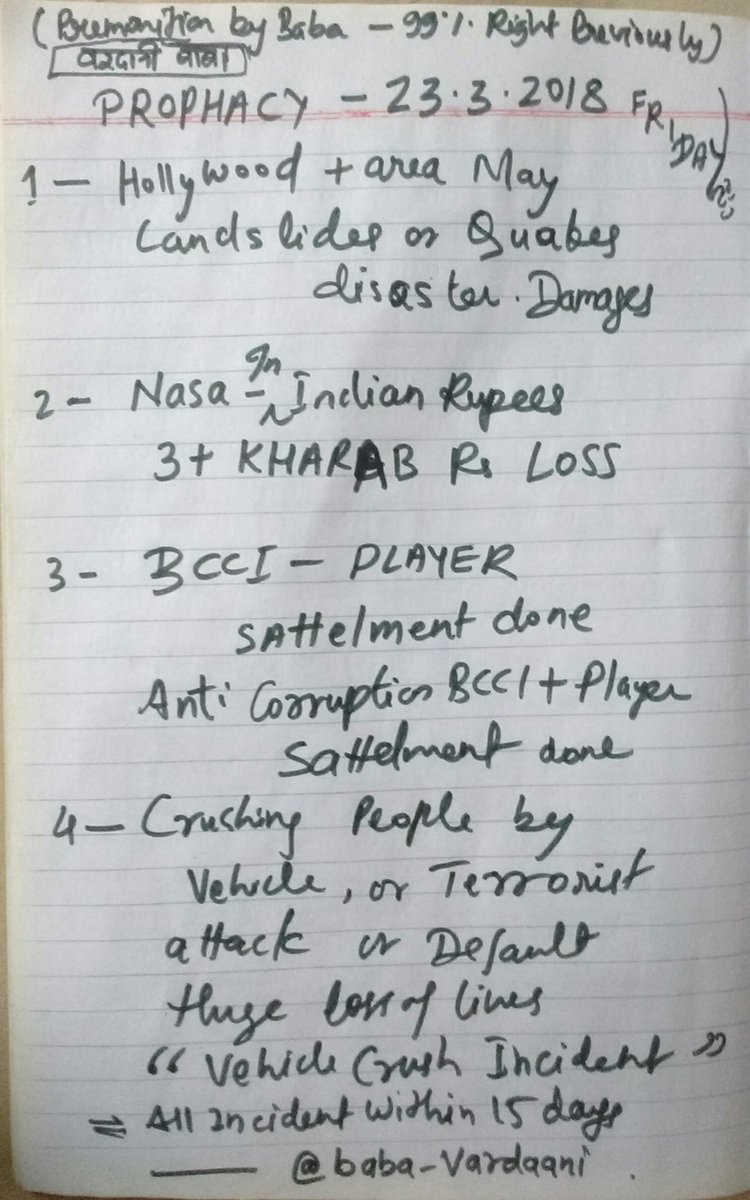 (Premonition by Baba - 99% Right Previously)
वरदानी बाबा
PROPHACY - 23.3.2018 FRIDAY
1 - Hollywood + area May
Landslides or Quakes
disaster. Damages
2 - Nasa - In Indian Rupees
3+ KHARAB Rs LOSS
3 - BCCI - PLAYER
SATTelment done
Anti Corruption BCCI + Player
Sattelment done
4 - Crushing People by
Vehicle, or Terrorist
attack or Default
Huge loss of lives
"Vehicle Crush Incident"
⇌ All Incident Within 15 days
— @baba-Vardaani.